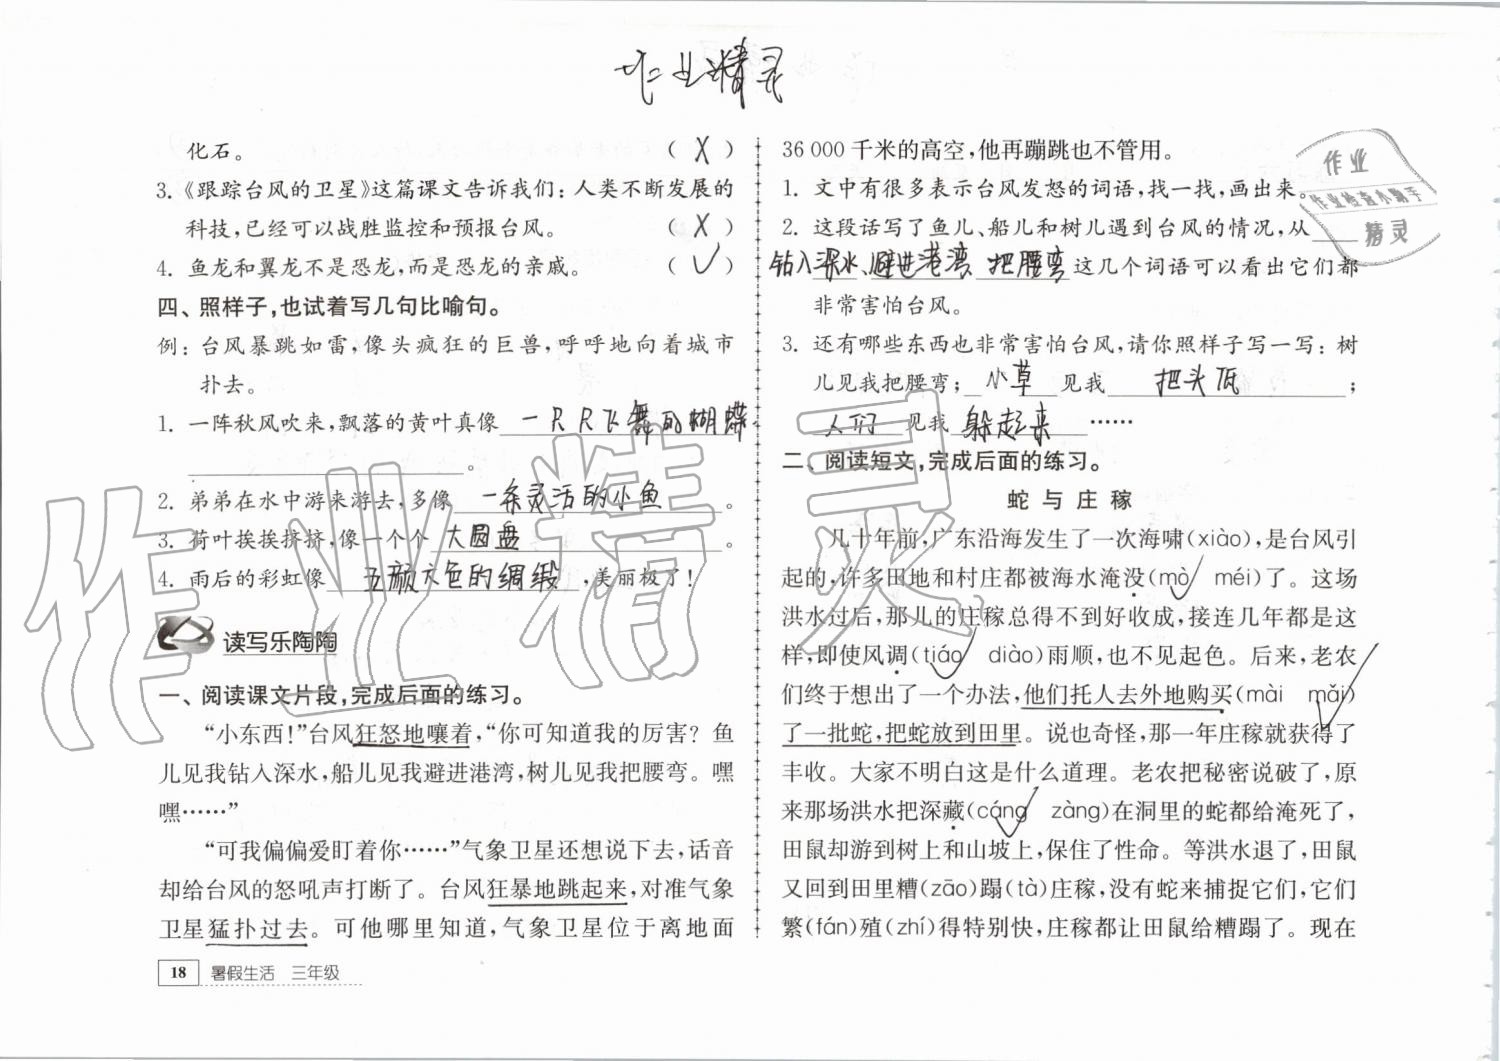 作业精灵
化石。 （ X ）
3.《跟踪台风的卫星》这篇课文告诉我们：人类不断发展的
科技，已经可以战胜监控和预报台风。 （ X ）
4. 鱼龙和翼龙不是恐龙，而是恐龙的亲戚。 （ √ ）
四、照样子，也试着写几句比喻句。
例：台风暴跳如雷，像头疯狂的巨兽，呼呼地向着城市
扑去。
1. 一阵秋风吹来，飘落的黄叶真像 一只只飞舞的蝴蝶
。
2. 弟弟在水中游来游去，多像 一条灵活的小鱼 。
3. 荷叶挨挨挤挤，像一个个 大圆盘 。
4. 雨后的彩虹像 五颜六色的绸缎 ，美丽极了！
读写乐陶陶
一、阅读课文片段，完成后面的练习。
“小东西！”台风狂怒地嚷着，“你可知道我的厉害？鱼
儿见我钻入深水，船儿见我避进港湾，树儿见我把腰弯。嘿
嘿……”
“可我偏偏爱盯着你……”气象卫星还想说下去，话音
却给台风的怒吼声打断了。台风狂暴地跳起来，对准气象
卫星猛扑过去。可他哪里知道，气象卫星位于离地面
18 暑假生活 三年级
36 000 千米的高空，他再蹦跳也不管用。
1. 文中有很多表示台风发怒的词语，找一找，画出来。
2. 这段话写了鱼儿、船儿和树儿遇到台风的情况，从
钻入深水、避进港湾、把腰弯 这几个词语可以看出它们都
非常害怕台风。
3. 还有哪些东西也非常害怕台风，请你照样子写一写：树
儿见我把腰弯； 小草 见我 把头低 ；
人们 见我 躲起来 ……
二、阅读短文，完成后面的练习。
蛇与庄稼
几十年前，广东沿海发生了一次海啸(xiào)，是台风引
起的，许多田地和村庄都被海水淹没(mò √ méi)了。这场
洪水过后，那儿的庄稼总得不到好收成，接连几年都是这
样，即使风调(tiáo √ diào)雨顺，也不见起色。后来，老农
们终于想出了一个办法，他们托人去外地购买(mài mǎi √)
了一批蛇，把蛇放到田里。说也奇怪，那一年庄稼就获得了
丰收。大家不明白这是什么道理。老农把秘密说破了，原
来那场洪水把深藏(cáng √ zàng)在洞里的蛇都给淹死了，
田鼠却游到树上和山坡上，保住了性命。等洪水退了，田鼠
又回到田里糟(zāo)蹋(tà)庄稼，没有蛇来捕捉它们，它们
繁(fán)殖(zhí)得特别快，庄稼都让田鼠给糟蹋了。现在
作业
作业检查小助手
精灵
作业精灵